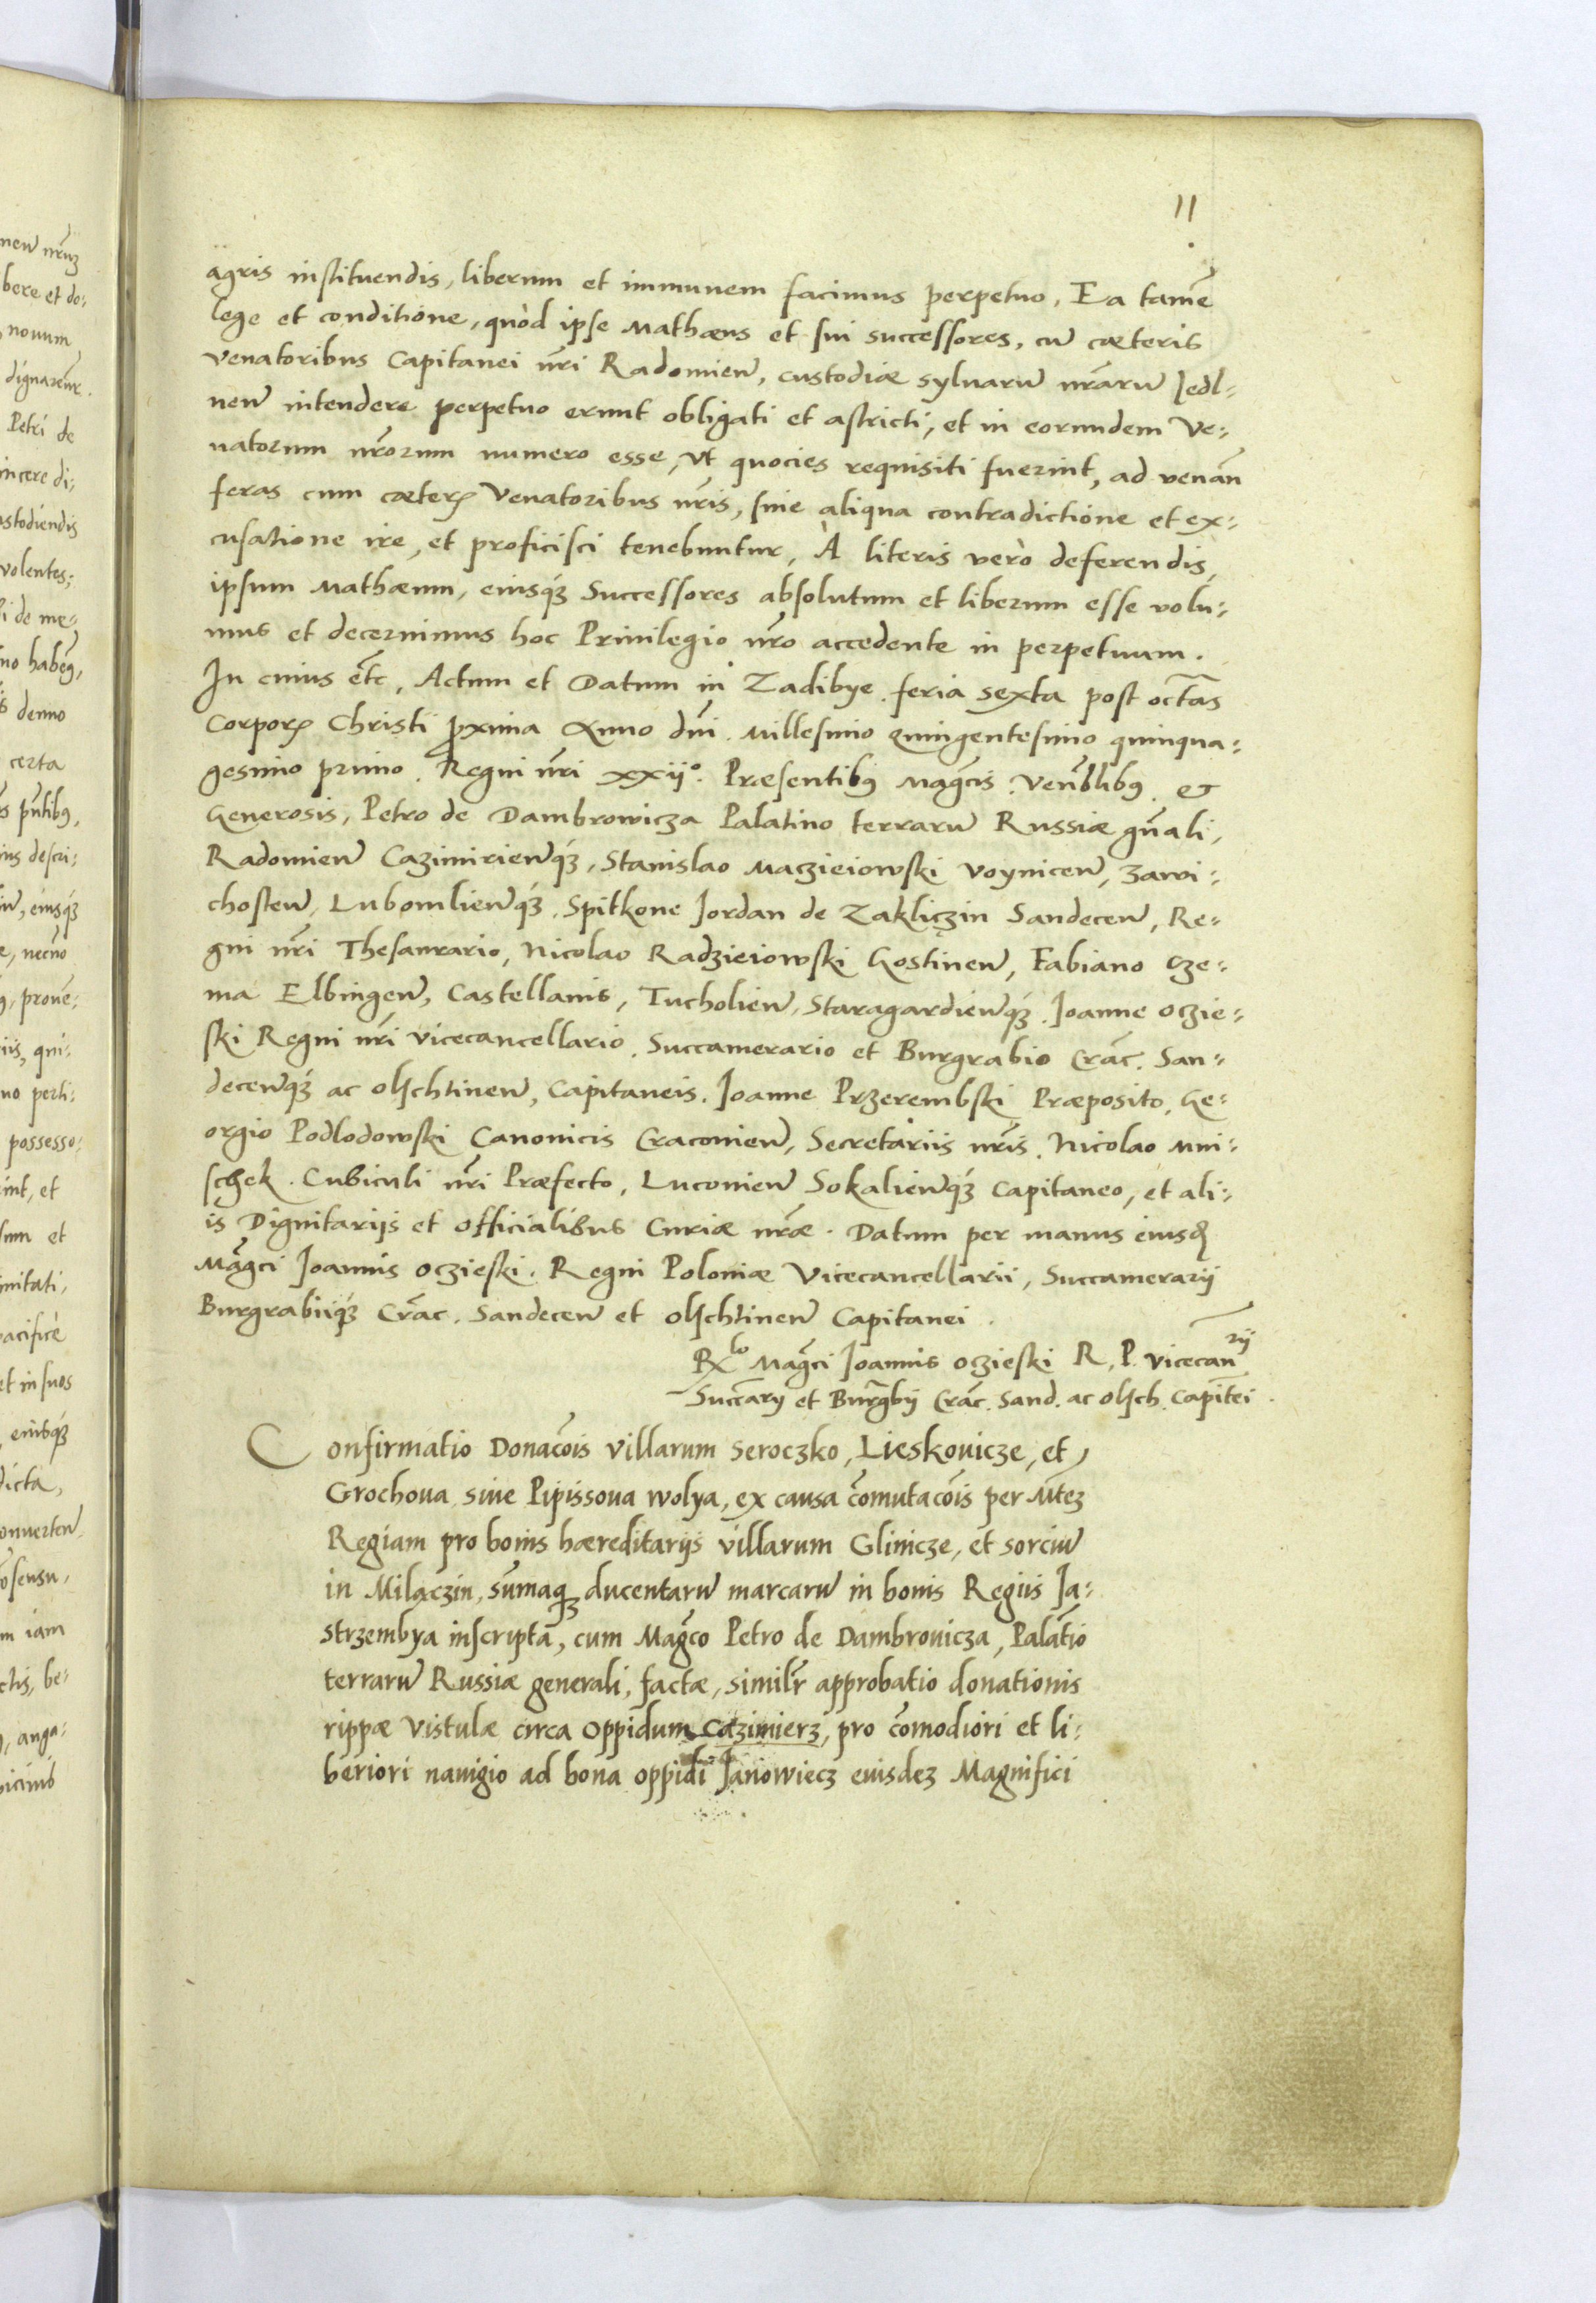 11
agris instituendis, liberum et immunem facimus perpetuo, Ea tamē
lege et conditione, quòd ipse Mathæus et sui successores, cū cæteris
Venatoribus Capitanei nr̃i Radomien̄, custodiæ syluarū nr̃arū Jedl-
nen̄ intendere perpetuo erunt obligati et astricti, et in eorundem Ve-
natorum nr̃orum numero esse, vt quocies requisiti fuerint, ad venan̄
feras cum cæteris Venatoribus nr̃is, sine aliqua contradictione et ex-
cusatione ire, et proficisci tenebuntur, A literis verò deferendis,
ipsum Mathæum, eiusq́ꝫ Successores absolutum et liberum esse volu-
mus et decernimus hoc Priuilegio nr̃o accedente in perpetuum.
In cuius etc̃, Actum et Datum in Zadibye feria sexta post octãs
Corporis Christi proxima Anno dñi Millesimo quingentesimo quinqua-
gesimo primo. Regni nr̃i xxijº. Præsentibꝰ Magc̃is, Venr̃blibꝰ et
Generosis, Petro de Dambrowicza Palatino terrarū Russiæ gñali,
Radomien̄ Cazimirien̄q́ꝫ, Stanislao Maczieiowski Voynicen̄, Zawi-
chosten̄, Lubomlien̄q́ꝫ, Spitkone Jordan de Zakliczin Sandecen̄, Re-
gni nr̃i Thesaurario, Nicolao Radzieiowski Gostinen̄, Fabiano Cze-
ma Elbingen̄, Castellanis, Tucholien̄, Staragardien̄q́ꝫ. Joanne Oczie-
ski Regni nr̃i vicecancellario, Succamerario et Burgrabio Crac̃. San-
decen̄q́ꝫ ac Olschtinen̄, Capitaneis. Joanne Przerembski Præposito, Ge-
orgio Podlodowski Canonicis Cracouien̄, Secretariis nr̃is. Nicolao Mni-
schek. Cubiculi nr̃i Præfecto, Luconien̄ Sokalien̄q́ꝫ Capitaneo, et ali-
is Dignitarijs et Officialibus Curiæ nr̃æ. Datum per manus eiusd̃
Magc̃i Joannis Oczieski. Regni Poloniæ Vicecancellarii, Succamerarij
Burgrabiiq́ꝫ Crac̃. Sandecen̄ et Olschtinen̄ Capitanei.
Rx̃ lo Magc̃i Joannis Oczieski R. P. Vicecan̄rij
Succãrij et Burg̃bij Crac̃. Sand. ac Olsch. Capitei.
Confirmatio Donac̃ois villarum Seroczko, Lieskouicze, et
Grochoua siue Pipissoua Wolya, ex causa com̃utac̃ois per Mtez
Regiam pro bonis hæreditarijs villarum Glinicze, et sorciū
in Milączin, sum̃aqꝫ ducentarū marcarū in bonis Regiis Ja-
strzembya inscripta, cum Magc̃o Petro de Dambrouicza, Palatĩo
terrarū Russiæ generali, factæ, similr̃ approbatio donationis
rippæ Vistulæ circa Oppidum Cazimierz, pro com̃odiori et li-
beriori nauigio ad bona oppidi Janowiecz eiusdez Magnifici